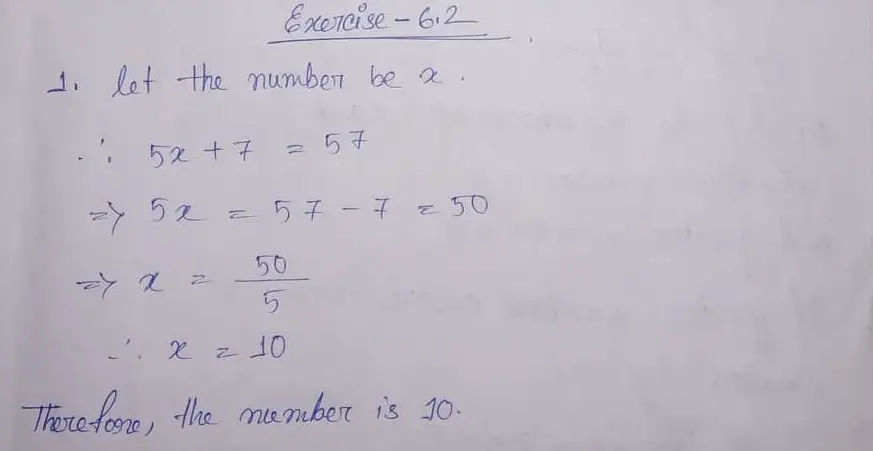 Exercise - 6.2
1. let the number be x.
∴ 5x + 7 = 57
=> 5x = 57 - 7 = 50
=> x = 50/5
∴ x = 10
Therefore, the number is 10.